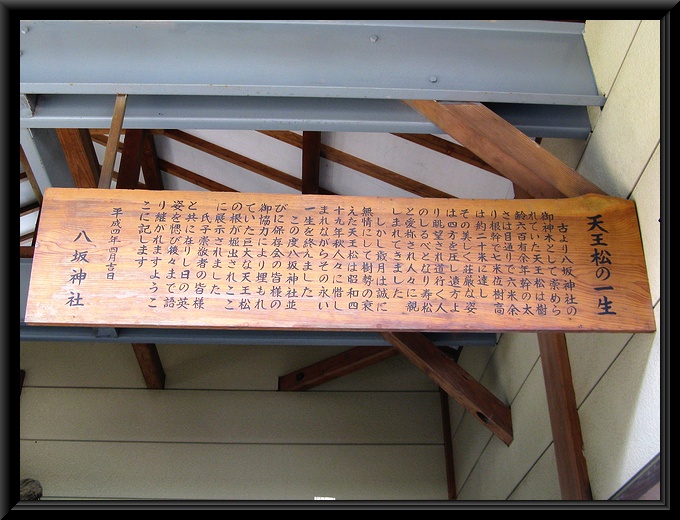 天王松の一生
古より八坂神社の
御神木として崇めら
れていた天王松は樹
齢六百有余年幹の太
さは目通りで六米余
り根幹で七米位樹高
は約二十米に達し
その美しく荘厳な姿
は四方を圧し遠方よ
り眺望され道行く人
のしるべとなり寿松
と愛称され人々に親
しまれてきました
しかし歳月は誠に
無情にして樹勢の衰
えた天王松は昭和四
十九年秋人々に惜し
まれながらその永い
一生を終えました
この度八坂神社並
びに保存会の皆様の
御協力により埋もれ
ていた巨大な天王松
の根が堀出されここ
に展示されました
氏子崇敬者の皆様
と共に在りし日の英
姿を偲び後々まで語
り継がれますようこ
こに記します
平成四年四月吉日
八坂神社